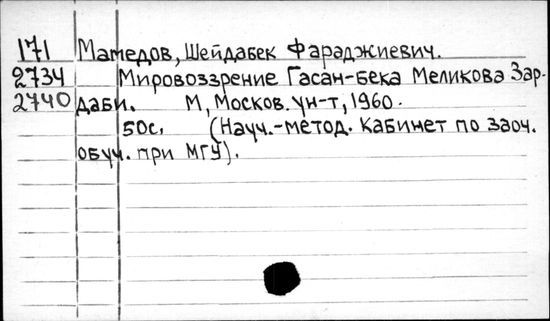 171 Мамедов, Шейдабек Фараджиевич.
2734 Мировоззрение Гасан-бека Меликова Зар-
2740 даби. М, Москов. ун-т, 1960.
50с. (Науч.-метод. кабинет по заоч.
обуч. при МГУ).